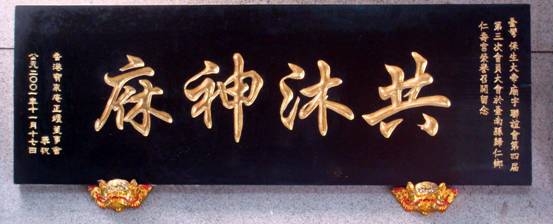 臺灣保生大帝廟宇聯誼會第四屆
第三次會員大會於臺南縣歸仁鄉
仁壽宮榮譽召開留念
共沐神庥
香港寶泉庵正壇董事會
恭祝
公元二〇〇一年十一月十七日